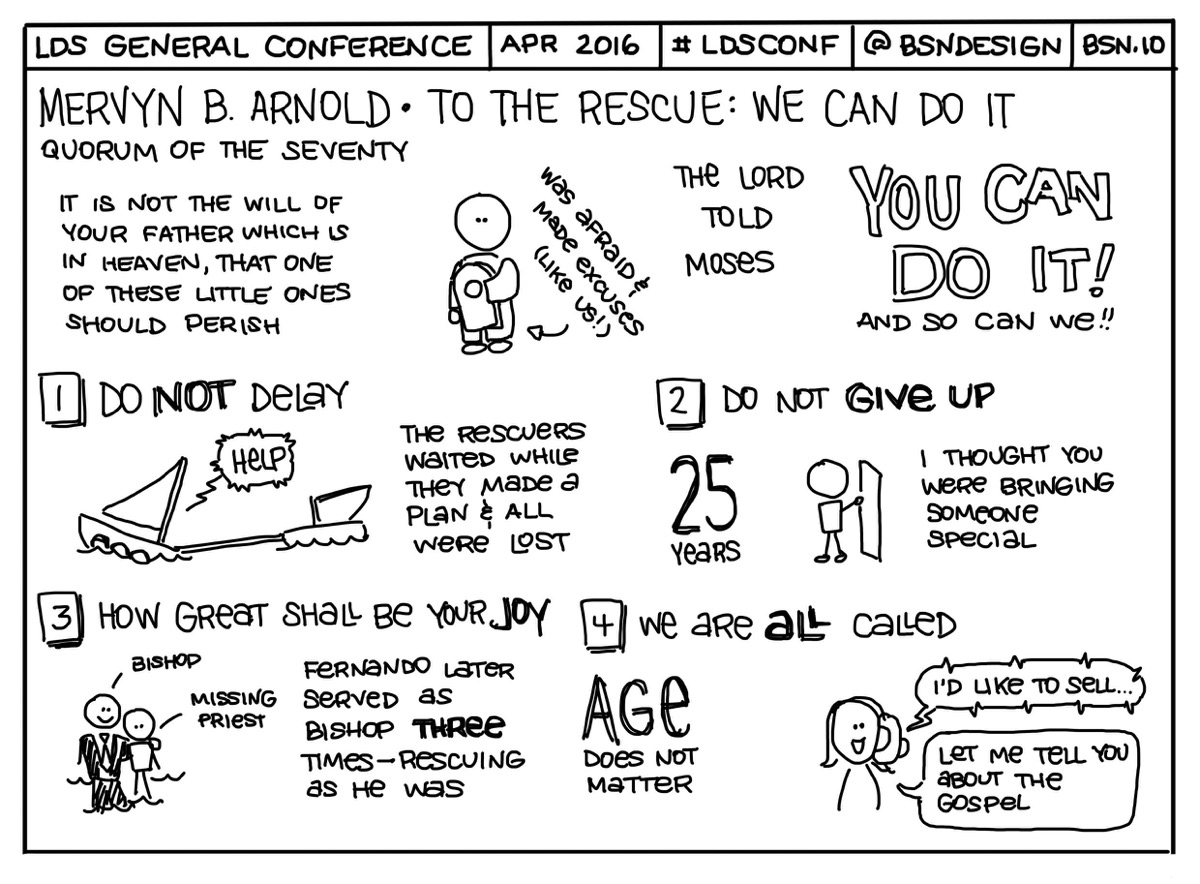 LDS GENERAL CONFERENCE
APR 2016
#LDSCONF
@BSNDESIGN
BSN.IO
MERVYN B. ARNOLD • TO THE RESCUE: WE CAN DO IT
QUORUM OF THE SEVENTY
IT IS NOT THE WILL OF
YOUR FATHER WHICH IS
IN HEAVEN, THAT ONE
OF THESE LITTLE ONES
SHOULD PERISH
WAS AFRAID &
MADE EXCUSES
(LIKE US!)
THE LORD
TOLD
MOSES
YOU CAN
DO IT!
AND SO CAN WE!!
1 DO NOT DELAY
HELP
THE RESCUERS
WAITED WHILE
THEY MADE A
PLAN & ALL
WERE LOST
2 DO NOT GIVE UP
25
YEARS
I THOUGHT YOU
WERE BRINGING
SOMEONE
SPECIAL
3 HOW GREAT SHALL BE YOUR JOY
BISHOP
MISSING
PRIEST
FERNANDO LATER
SERVED AS
BISHOP THREE
TIMES – RESCUING
AS HE WAS
4 WE ARE ALL CALLED
AGE
DOES NOT
MATTER
I'D LIKE TO SELL...
LET ME TELL YOU
ABOUT THE
GOSPEL